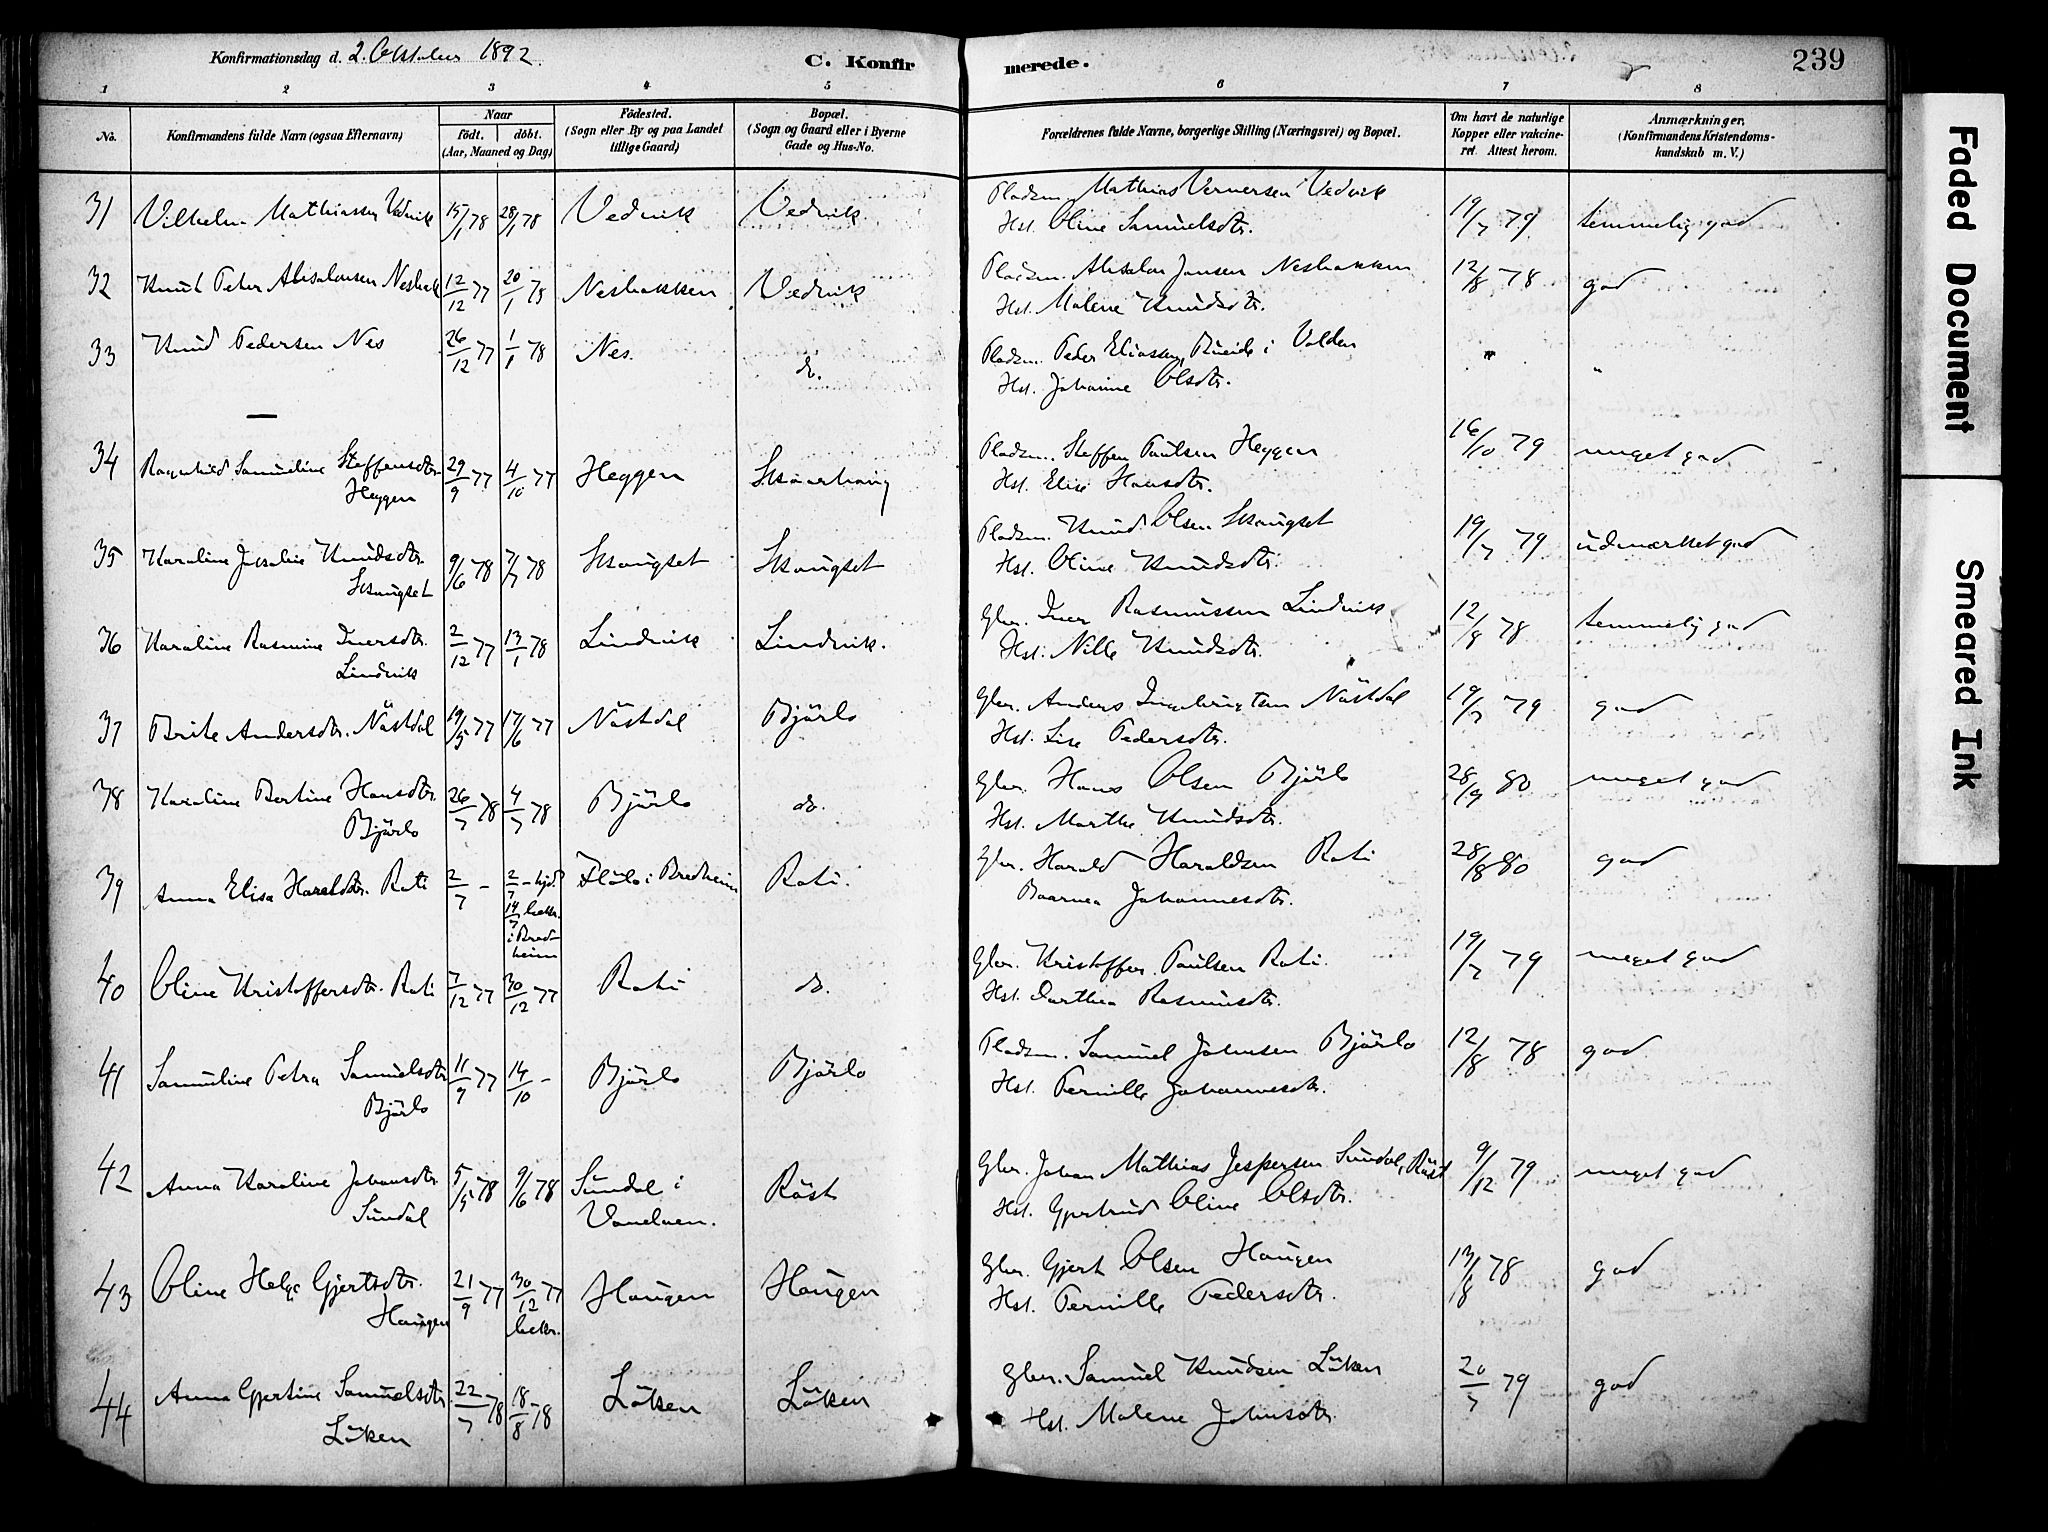 Konfirmationsdag d. 2. Oktober 1892.
C. Konfirmerede.
239
1 2 3 4 5 6 7 8
No.
Konfirmandens fulde Navn (ogsaa Efternavn)
Naar
födt. döbt.
(Aar, Maaned og Dag)
Födested.
(Sogn eller By og paa Landet
tillige Gaard)
Bopæl.
(Sogn og Gaard eller i Byerne
Gade og Hus-No.
Forældrenes fulde Navne, borgerlige Stilling (Næringsvei) og Bopæl.
Om havt de naturlige
Kopper eller vakcine-
ret. Attest herom.
Anmærkninger,
(Konfirmandens Kristendoms-
kundskab m. V.)
31 Vilhelm Mathiassen Vedvik 15/1 78 28/1 78 Vedvik Vedvik Pladsm. Mathias Vernersen Vedvik 19/7 79 temmelig god
Hst. Oline Samuelsdtr.
32 Knut Peter Absalonsen Nesbak 12/12 77 20/1 78 Nesbakken Vedvik Pladsm. Absalon Jansen Nesbakken 12/8 78 god
Hst. Malene Knudsdtr.
33 Knud Pedersen Nes 26/12 77 1/1 78 Nes. do. Pladsm. Peder Eliassen, i Volden " "
Hst. Johanne Olsdtr.
—
34 Ragnhild Samueline Steffensdtr. 29/9 77 4/10 77 Heggen Skaarhaug Pladsm. Steffen Paulsen Heggen 16/10 79 meget god
Heggen Hst. Elise Hansdtr.
35 Karoline Knudsdtr. 9/6 78 7/7 78 Skaugset Skaugset Pladsm. Knud Olsen Skaugset 19/7 79 udmærket god
Skaugset Hst. Oline Knudsdtr.
36 Karoline Rasmine Iversdtr. 2/12 77 13/1 78 Lindvik Lindvik. Gbr. Iver Rasmussen Lindvik 12/8 78 temmelig god
Lindvik Hst. Nille Knudsdtr.
37 Brite Andersdtr. Nåstdal 19/5 77 17/6 77 Nåstdal Bjørlo Gbr. Anders Ingebrigtsen Nåstdal 19/7 79 god
Hst. Lise Pedersdtr.
38 Karoline Bertine Hansdtr. 26/7 78 4/7 78 Bjørlo do. Gbr. Hans Olsen Bjørlo 28/9 80 meget god
Bjørlo Hst. Marthe Knudsdtr.
39 Anna Elisa Haraldsdtr. Roti 2/7 - 2/7 - hjd. i Bredheim Roti. Gbr. Harald Haraldsen Roti 28/8 80 god
14/7 bekr. i Bredheim Johannesdtr.
40 Oline Kristoffersdtr. Roti 7/12 77 30/12 77 Roti do. Gbr. Kristoffer Paulsen Roti. 19/7 79 meget god
Hst. Dorthea Rasmusdtr.
41 Samueline Petra Samuelsdtr 11/9 77 14/10 - Bjørlo Bjørlo Pladsm. Samuel Johnsen Bjørlo 12/8 78 god
Bjørlo Hst. Pernille Johannesdtr.
42 Anna Karoline Johansdtr 5/5 78 9/6 78 Sundal i Røst Gbr. Johan Mathias Jespersen Sundal, Røst 9/12 79 meget god
Sundal Vanelven. Hst. Gjertrud Oline Olsdtr.
43 Oline Helge Gjertsdtr. 21/9 77 30/12 77 Haugen Haugen Gbr. Gjert Olsen Haugen 13/8 78 god
Haugen bekr. Hst. Pernille Pedersdtr.
44 Anna Gjertine Samuelsdtr 22/7 78 18/8 78 Løken Løken Gbr. Samuel Knudsen Løken 20/7 79 god
Løken Hst. Malene Johnsdtr.
Faded Document
Smeared Ink